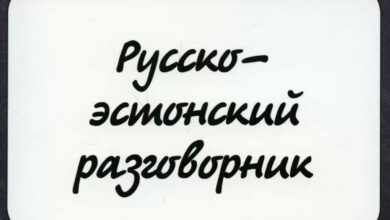 Русско-
эстонский
разговорник